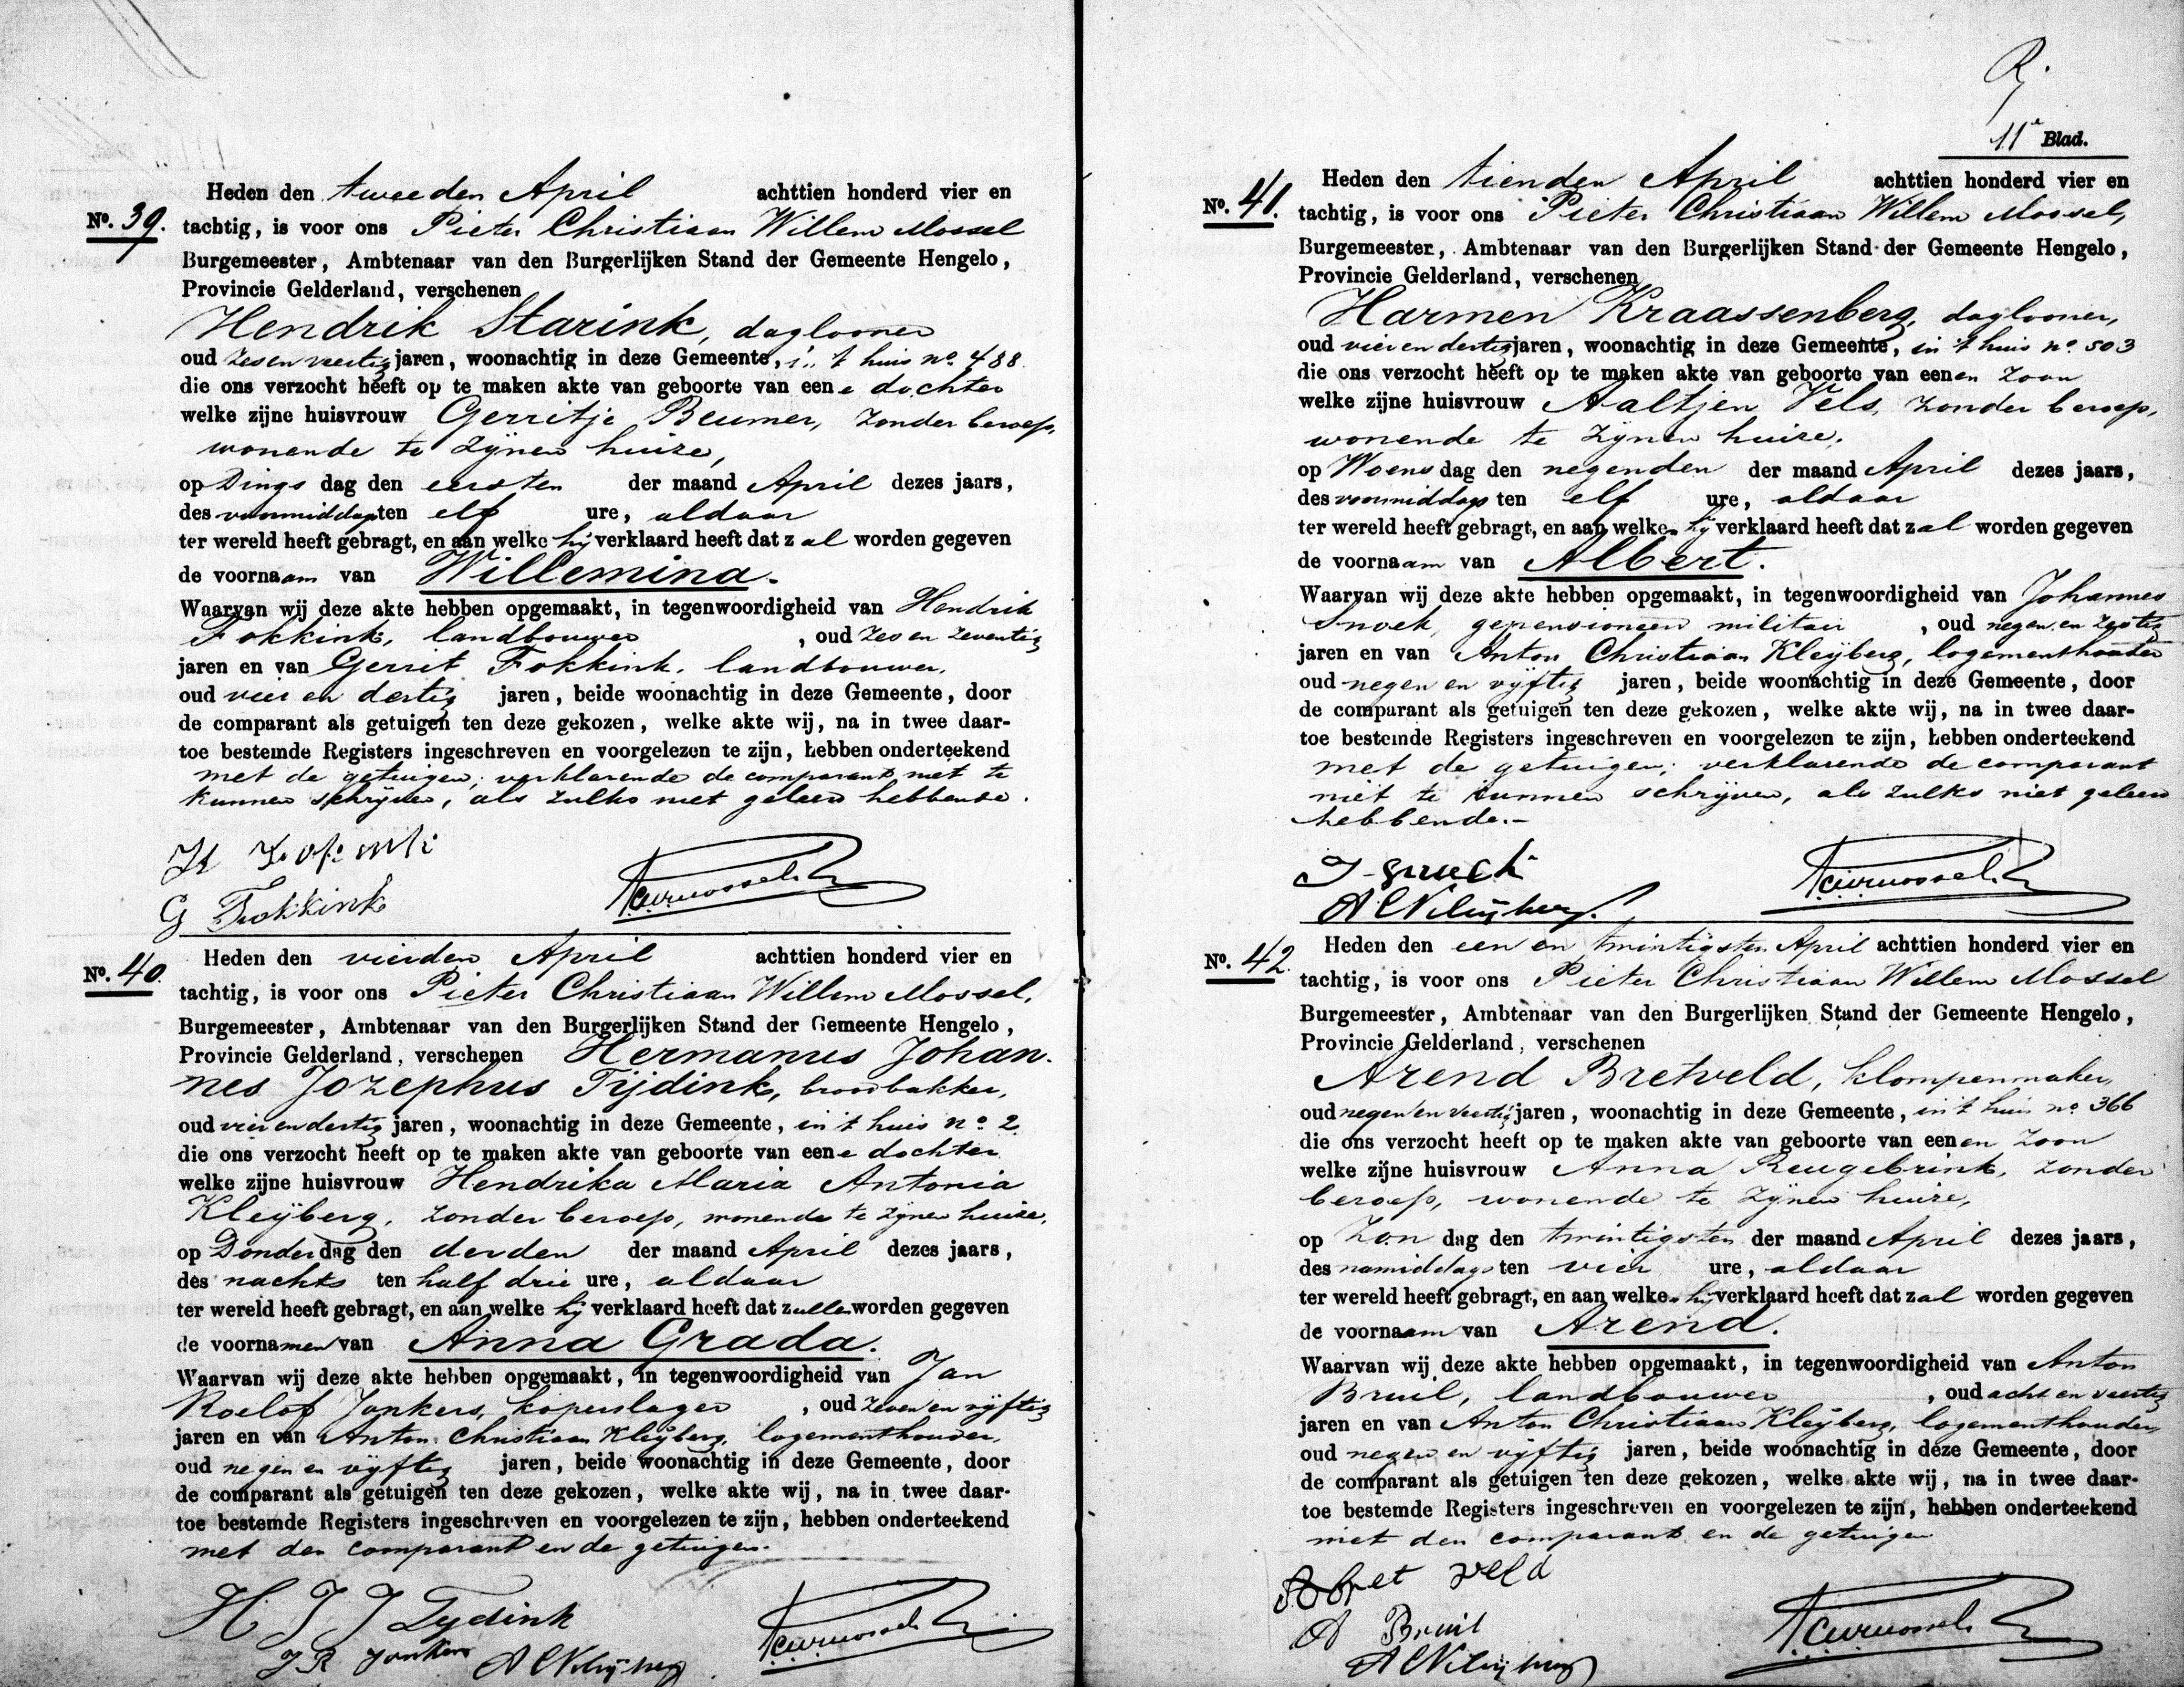 Heden den tweeden April achttien honderd vier en
No. 39. tachtig, is voor ons Pieter Christiaan Willem Mossel
Burgemeester, Ambtenaar van den Burgerlijken Stand der Gemeente Hengelo,
Provincie Gelderland, verschenen
Hendrik Starink, daglooner
oud zes en veertig jaren, woonachtig in deze Gemeente, in 't huis no. 488
die ons verzocht heeft op te maken akte van geboorte van eene dochter
welke zijne huisvrouw Gerritje Beumer, zonder beroep,
wonende te zijnen huize,
op Dings dag den eersten der maand April dezes jaars,
des voormiddags ten elf ure, aldaar
ter wereld heeft gebragt, en aan welke hij verklaard heeft dat zal worden gegeven
de voornaam van Willemina.
Waarvan wij deze akte hebben opgemaakt, in tegenwoordigheid van Hendrik
Fokkink, landbouwer, oud zes en zeventig
jaren en van Gerrit Fokkink, landbouwer,
oud vier en dertig jaren, beide woonachtig in deze Gemeente, door
de comparant als getuigen ten deze gekozen, welke akte wij, na in twee daar-
toe bestemde Registers ingeschreven en voorgelezen te zijn, hebben onderteekend
met de getuigen; verklarende de comparant niet te
kunnen schrijven, als zulks niet geleerd hebbende.
G Fokkink
Heden den vierden April achttien honderd vier en
No. 40. tachtig, is voor ons Pieter Christiaan Willem Mossel,
Burgemeester, Ambtenaar van den Burgerlijken Stand der Gemeente Hengelo,
Provincie Gelderland, verschenen Hermanus Johan-
nes Jozephus Tijdink, broodbakker,
oud vier en dertig jaren, woonachtig in deze Gemeente, in 't huis no. 2
die ons verzocht heeft op te maken akte van geboorte van eene dochter
welke zijne huisvrouw Hendrika Maria Antonia
Kleijberg, zonder beroep, wonende te zijnen huize,
op Donderdag den derden der maand April dezes jaars,
des nachts ten half drie ure, aldaar
ter wereld heeft gebragt, en aan welke hij verklaard heeft dat zullen worden gegeven
de voornamen van Anna Grada.
Waarvan wij deze akte hebben opgemaakt, in tegenwoordigheid van Jan
Roelof Jonkers, koperslager, oud zeven en vijftig
jaren en van Anton Christiaan Kleijberg, logementhouder,
oud negen en vijftig jaren, beide woonachtig in deze Gemeente, door
de comparant als getuigen ten deze gekozen, welke akte wij, na in twee daar-
toe bestemde Registers ingeschreven en voorgelezen te zijn, hebben onderteekend
met den comparant en de getuigen.
H J J Tydink
J R Jonkers A C Kleijberg
11e Blad.
Heden den tienden April achttien honderd vier en
No. 41. tachtig, is voor ons Pieter Christiaan Willem Mossel,
Burgemeester, Ambtenaar van den Burgerlijken Stand der Gemeente Hengelo,
Provincie Gelderland, verschenen
Harmen Kraassenberg, daglooner,
oud vier en dertig jaren, woonachtig in deze Gemeente, in 't huis no. 503
die ons verzocht heeft op te maken akte van geboorte van eenen zoon
welke zijne huisvrouw Aaltjen Vels, zonder beroep,
wonende te zijnen huize,
op Woensdag den negenden der maand April dezes jaars,
des voormiddags ten elf ure, aldaar
ter wereld heeft gebragt, en aan welken hij verklaard heeft dat zal worden gegeven
de voornaam van Albert.
Waarvan wij deze akte hebben opgemaakt, in tegenwoordigheid van Johannes
Snoek, gepensioneerd militair, oud negen en zestig
jaren en van Anton Christiaan Kleijberg, logementhouder
oud negen en vijftig jaren, beide woonachtig in deze Gemeente, door
de comparant als getuigen ten deze gekozen, welke akte wij, na in twee daar-
toe bestemde Registers ingeschreven en voorgelezen te zijn, hebben onderteekend
met de getuigen; verklarende de comparant
niet te kunnen schrijven, als zulks niet geleerd
hebbende.-
A C Kleijberg.
Heden den een en twintigsten April achttien honderd vier en
No. 42. tachtig, is voor ons Pieter Christiaan Willem Mossel
Burgemeester, Ambtenaar van den Burgerlijken Stand der Gemeente Hengelo,
Provincie Gelderland, verschenen
Arend Bretveld, klompenmaker,
oud negen en veertig jaren, woonachtig in deze Gemeente, in 't huis no. 366
die ons verzocht heeft op te maken akte van geboorte van eenen zoon
welke zijne huisvrouw Anna Reugebrink, zonder
beroep, wonende te zijnen huize,
op Zon dag den twintigsten der maand April dezes jaars,
des namiddags ten vier ure, aldaar
ter wereld heeft gebragt, en aan welken hij verklaard heeft dat zal worden gegeven
de voornaam van Arend.
Waarvan wij deze akte hebben opgemaakt, in tegenwoordigheid van Anton
Bruil, landbouwer, oud acht en veertig
jaren en van Anton Christiaan Kleijberg, logementhouder,
oud negen en vijftig jaren, beide woonachtig in deze Gemeente, door
de comparant als getuigen ten deze gekozen, welke akte wij, na in twee daar-
toe bestemde Registers ingeschreven en voorgelezen te zijn, hebben onderteekend
met den comparant en de getuigen
A Bret veld
A Bruil
A C Kleijberg